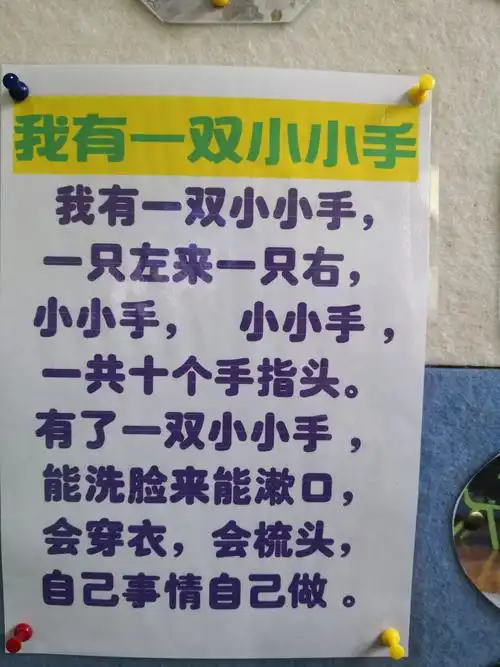 我有一双小小手
我有一双小小手，
一只左来一只右，
小小手， 小小手，
一共十个手指头。
有了一双小小手，
能洗脸来能漱口，
会穿衣，会梳头，
自己事情自己做。